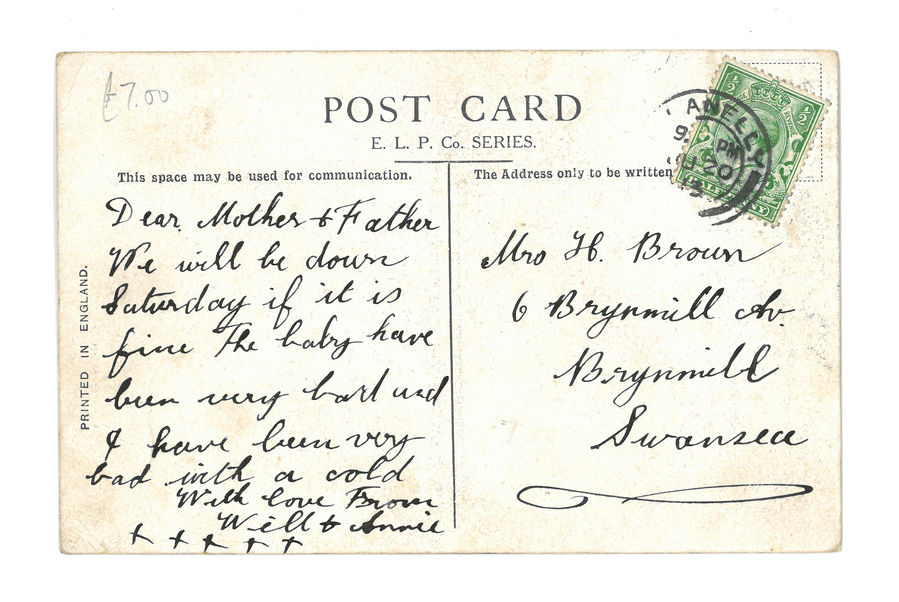 £7.00
POST CARD
E. L. P. Co. SERIES.
This space may be used for communication.
The Address only to be written
PRINTED IN ENGLAND.
Dear Mother & Father
We will be down
Saturday if it is
fine The baby have
been very bad and
I have been very
bad with a cold
With love From
Will & Annie
x x x x x
Mrs H. Brown
6 Brynmill Av.
Brynmill
Swansea
½ ½
ANELLY
PM
20